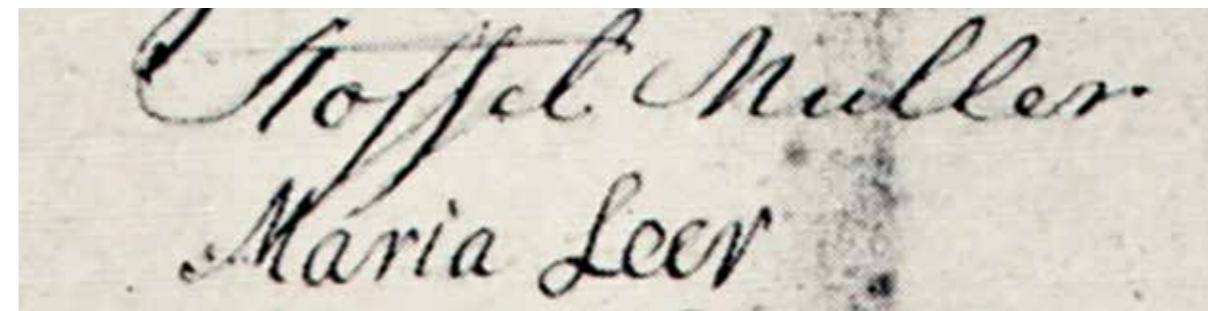 Stoffel Muller
Maria Leer